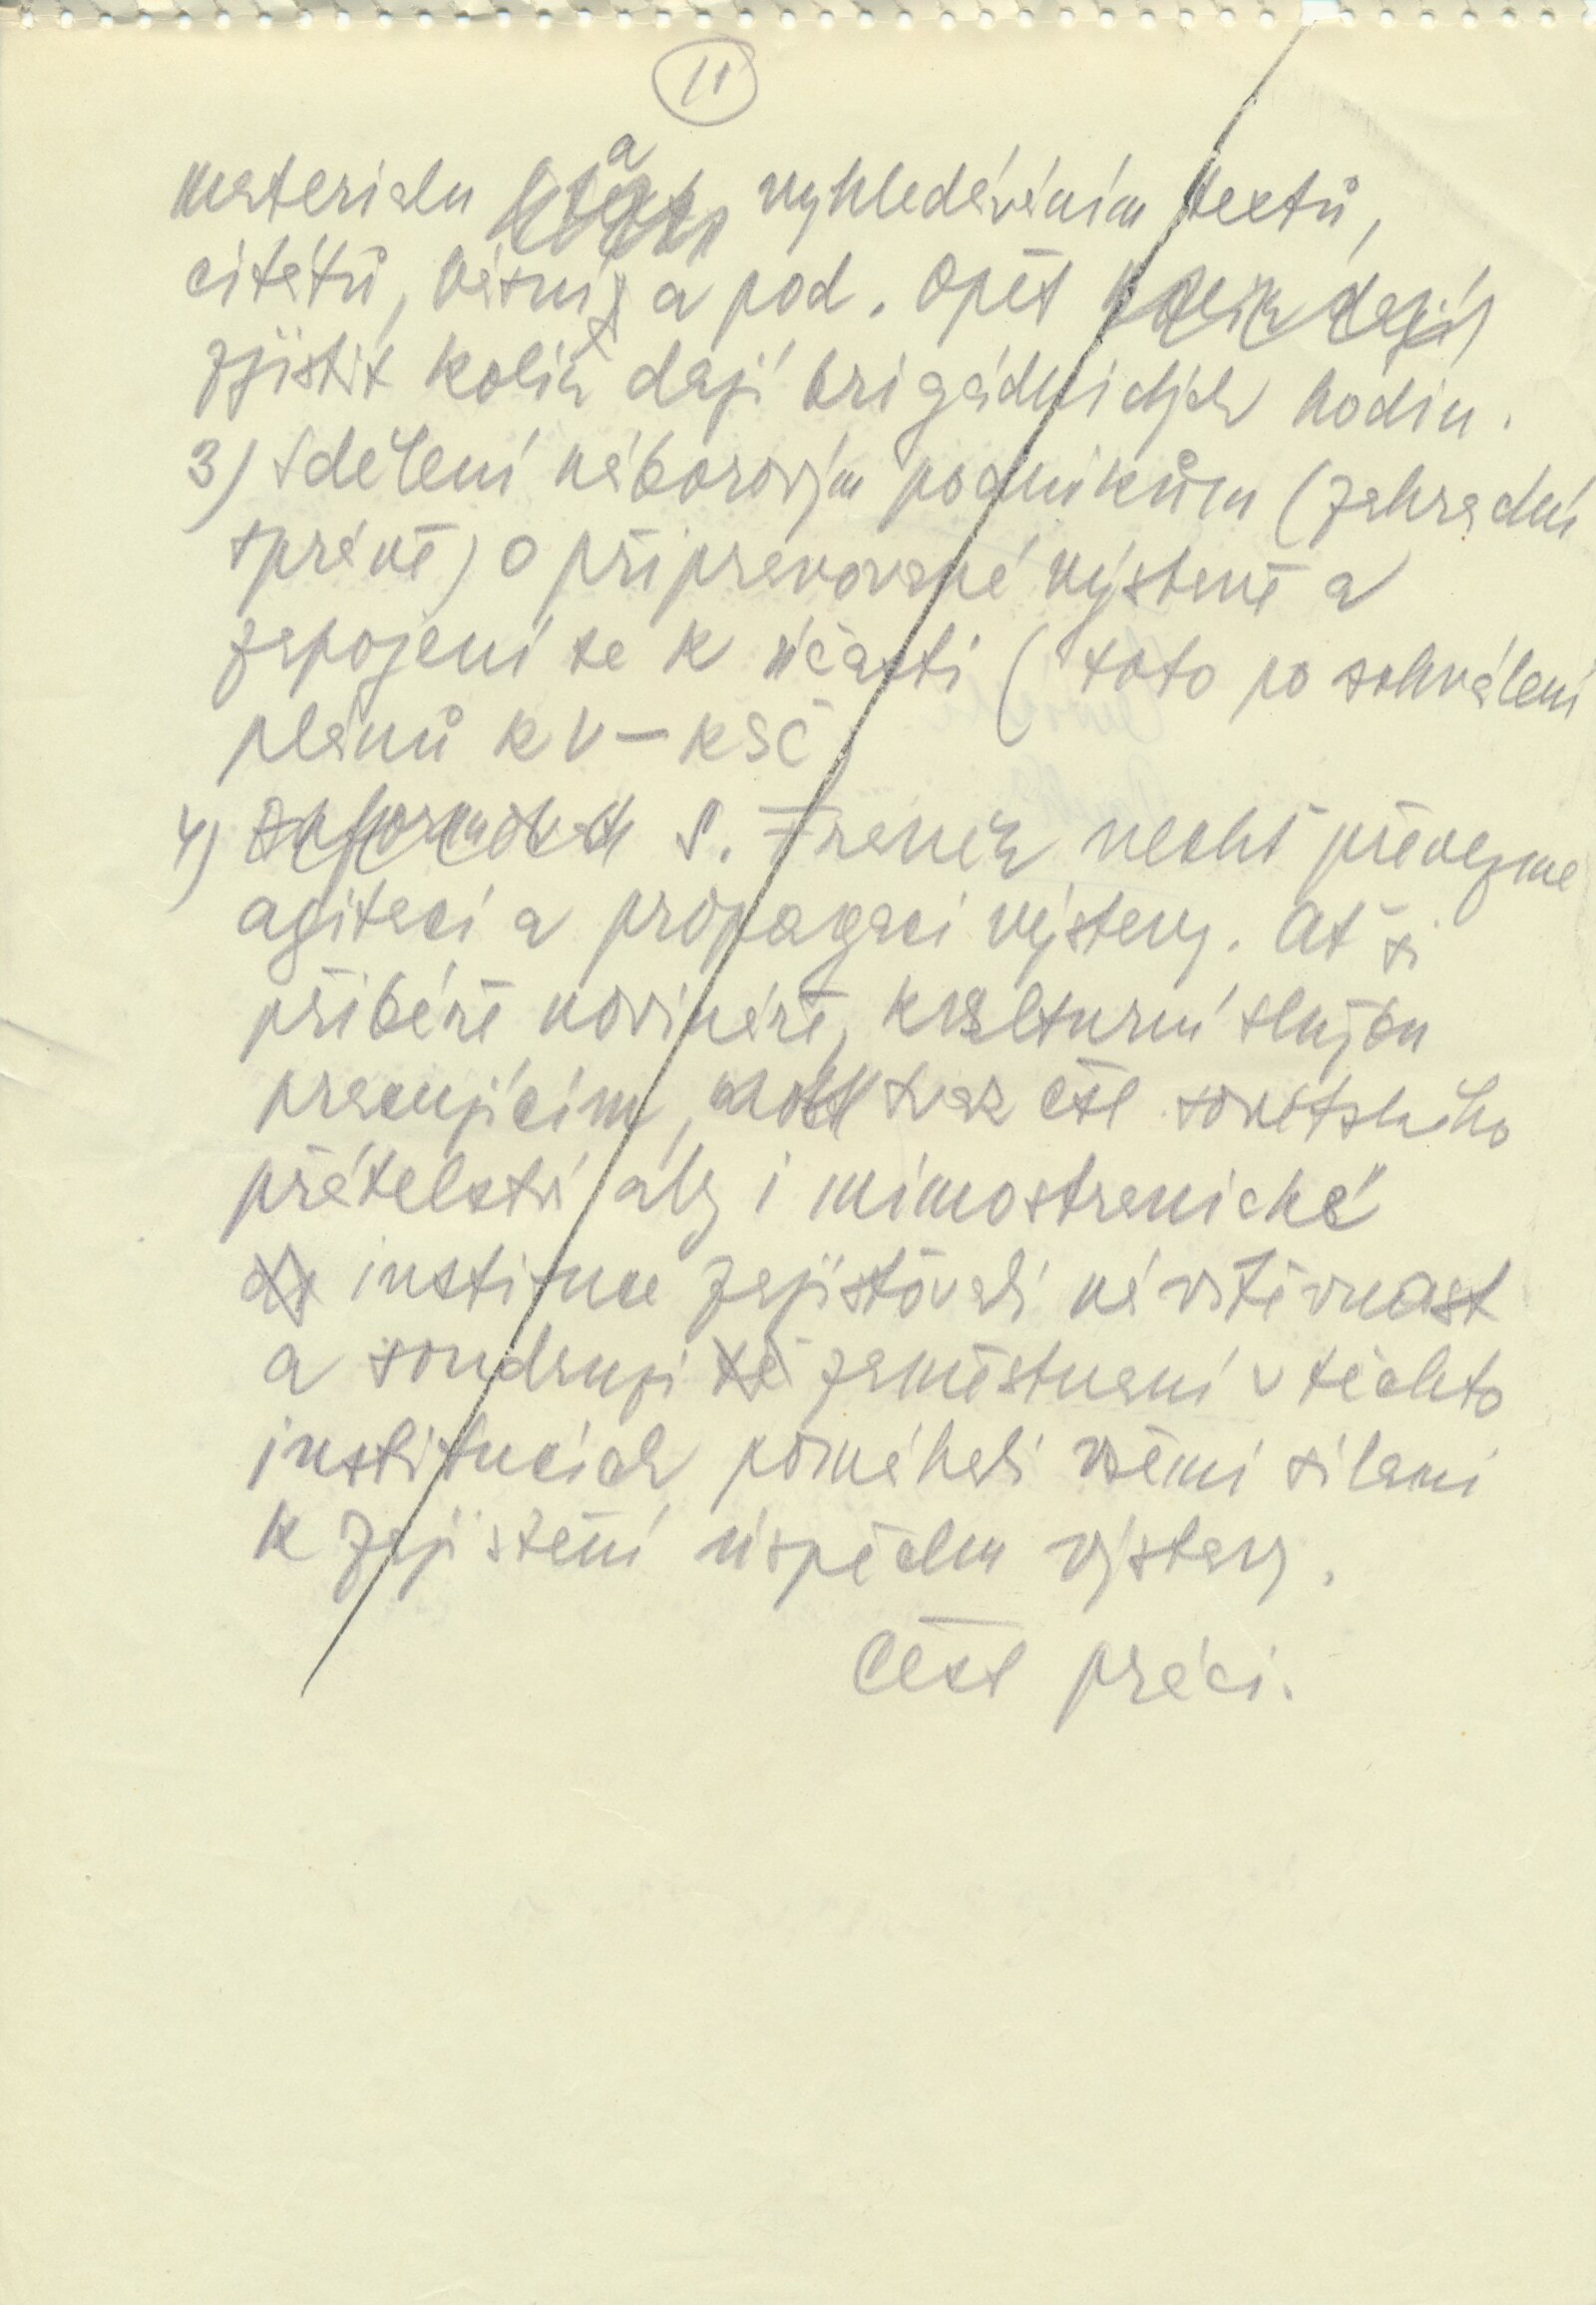 11
a
materialu vyhledáváním textů,
citátů, básní a pod. Opět kolik dají
zjistit kolik dají brigádnických hodin.
3) Sdělení náborovým podnikům (zahradní
správě) o připravované výstavě a
zapojení se k účasti (toto po schválení
plánů KV-KSČ
4) S. Franěk nechť převezme
agitaci a propagaci výstavy. Ať si
přibéře novináře, kulturní službu
pracujícím, svaz čsl sovětského
přátelství aby i mimostranické
instituce zajistovali návštěvnost
a soudruzi zaměstnaní v těchto
institucích pomáhali všemi silami
k zajištění úspěchu výstavy.
Čest práci.